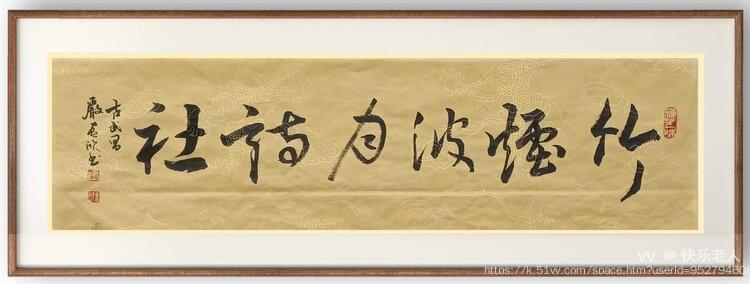 竹煙波月詩社
古武昌
嚴
书
W @ 快乐老人
https://k.51w.com/space.htm?userId=95279460